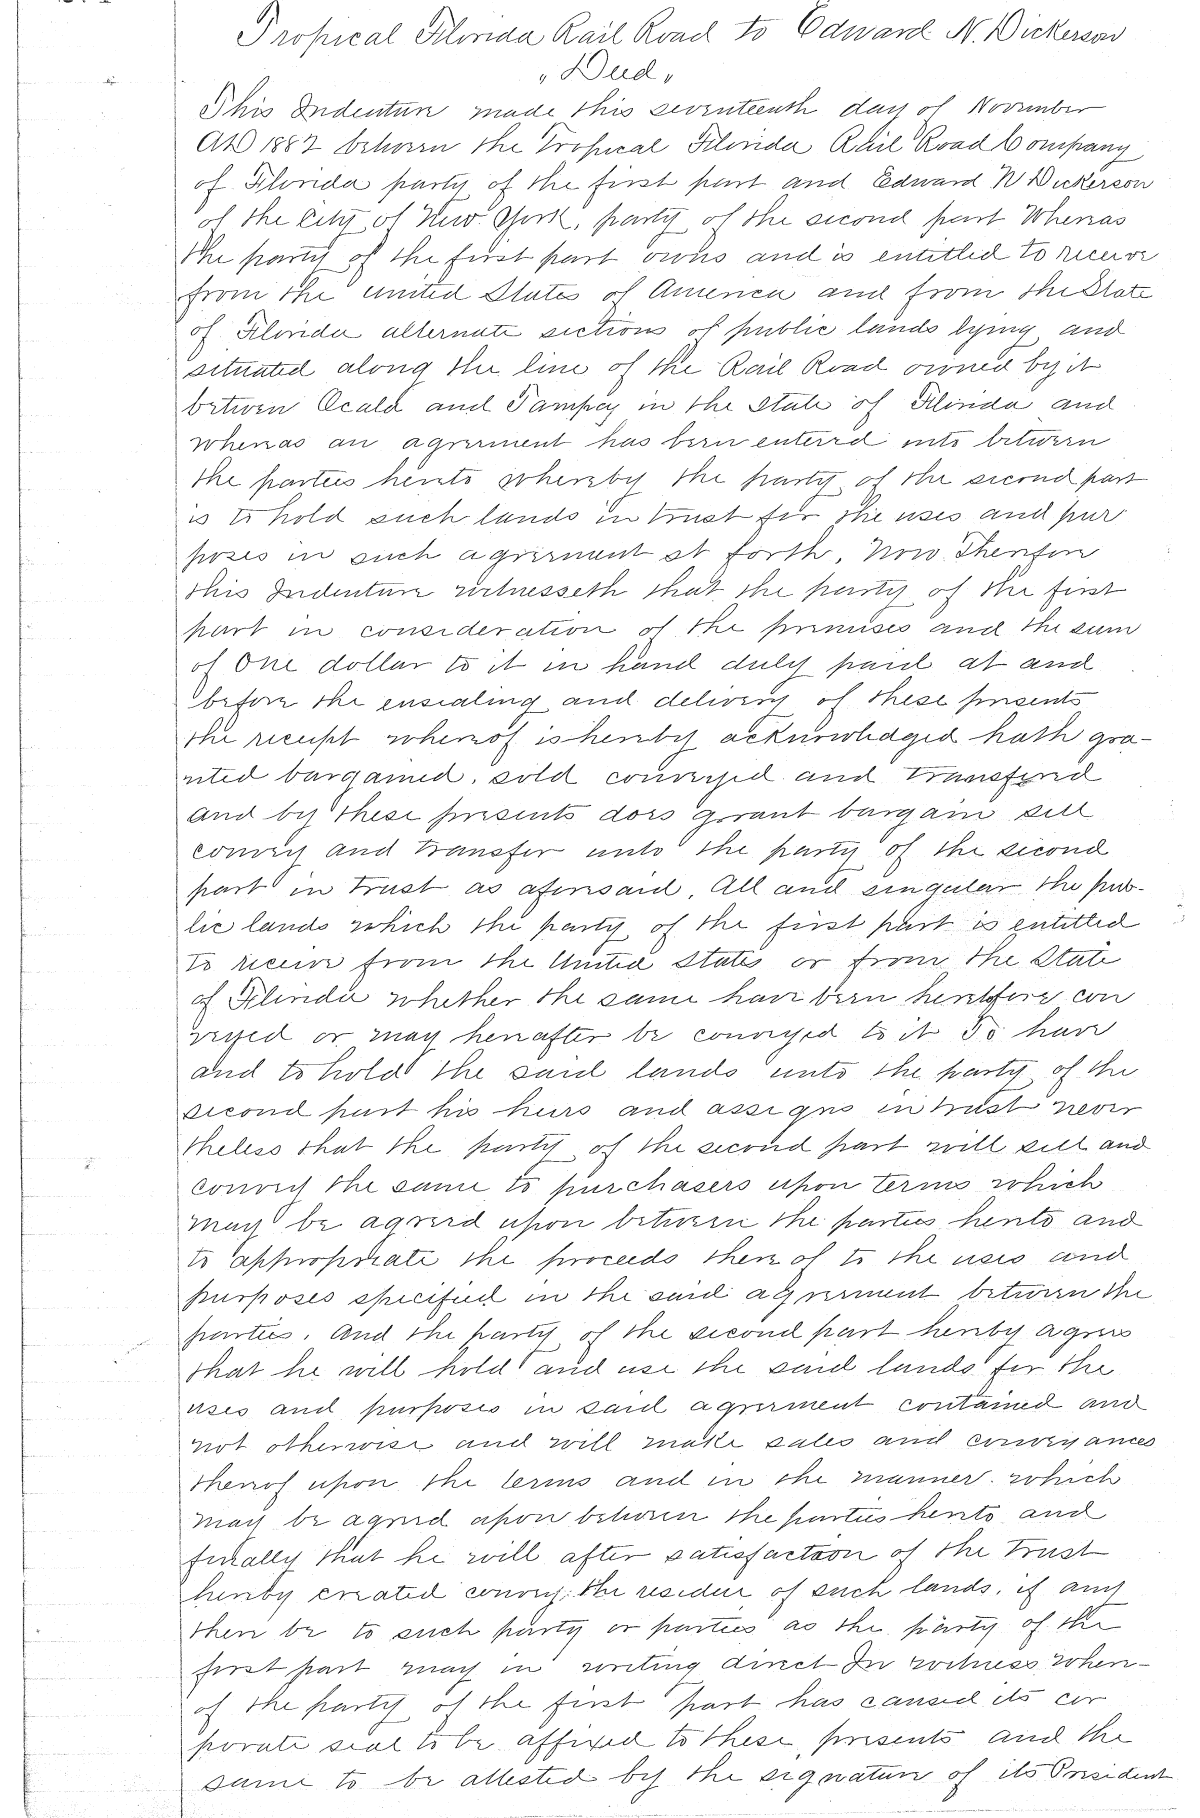 Tropical Florida Rail Road to Edward N. Dickerson
"Deed"
This Indenture made this seventeenth day of November
AD 1882 between the Tropical Florida Rail Road Company
of Florida party of the first part and Edward N Dickerson
of the City of New York, party of the second part Whereas
the party of the first part owns and is entitled to receive
from the united States of America and from the State
of Florida alternate sections of public lands lying and
situated along the line of the Rail Road owned by it
between Ocala and Tampa in the State of Florida and
whereas an agreement has been entered into between
the parties hereto whereby the party of the second part
is to hold such lands in trust for the uses and pur
poses in such agreement set forth. Now Therefore
this Indenture witnesseth that the party of the first
part in consideration of the premises and the sum
of One dollar to it in hand duly paid at and
before the ensealing and delivery of these presents
the receipt whereof is hereby acknowledged hath gra-
nted bargained. sold conveyed and transfered
and by these presents does grant bargain sell
convey and transfer unto the party of the second
part in trust as aforesaid. All and singular the pub-
lic lands which the party of the first part is entitled
to receive from the United States or from the State
of Florida whether the same have been heretofore con
veyed or may hereafter be conveyed to it To have
and to hold the said lands unto the party of the
second part his heirs and assigns in trust never
theless that the party of the second part will sell and
convey the same to purchasers upon terms which
may be agreed upon between the parties hereto and
to appropriate the proceeds there of to the uses and
purposes specified in the said agreement between the
parties. And the party of the second part hereby agrees
that he will hold and use the said lands for the
uses and purposes in said agreement contained and
not otherwise and will make sales and conveyances
thereof upon the terms and in the manner which
may be agreed upon between the parties hereto and
finally that he will after satisfaction of the trust
hereby created convey the residue of such lands. if any
there be to such party or parties as the party of the
first part may in writing direct In witness where-
of the party of the first part has caused its cor
porate seal to be affixed to these presents and the
same to be attested by the signature of its President